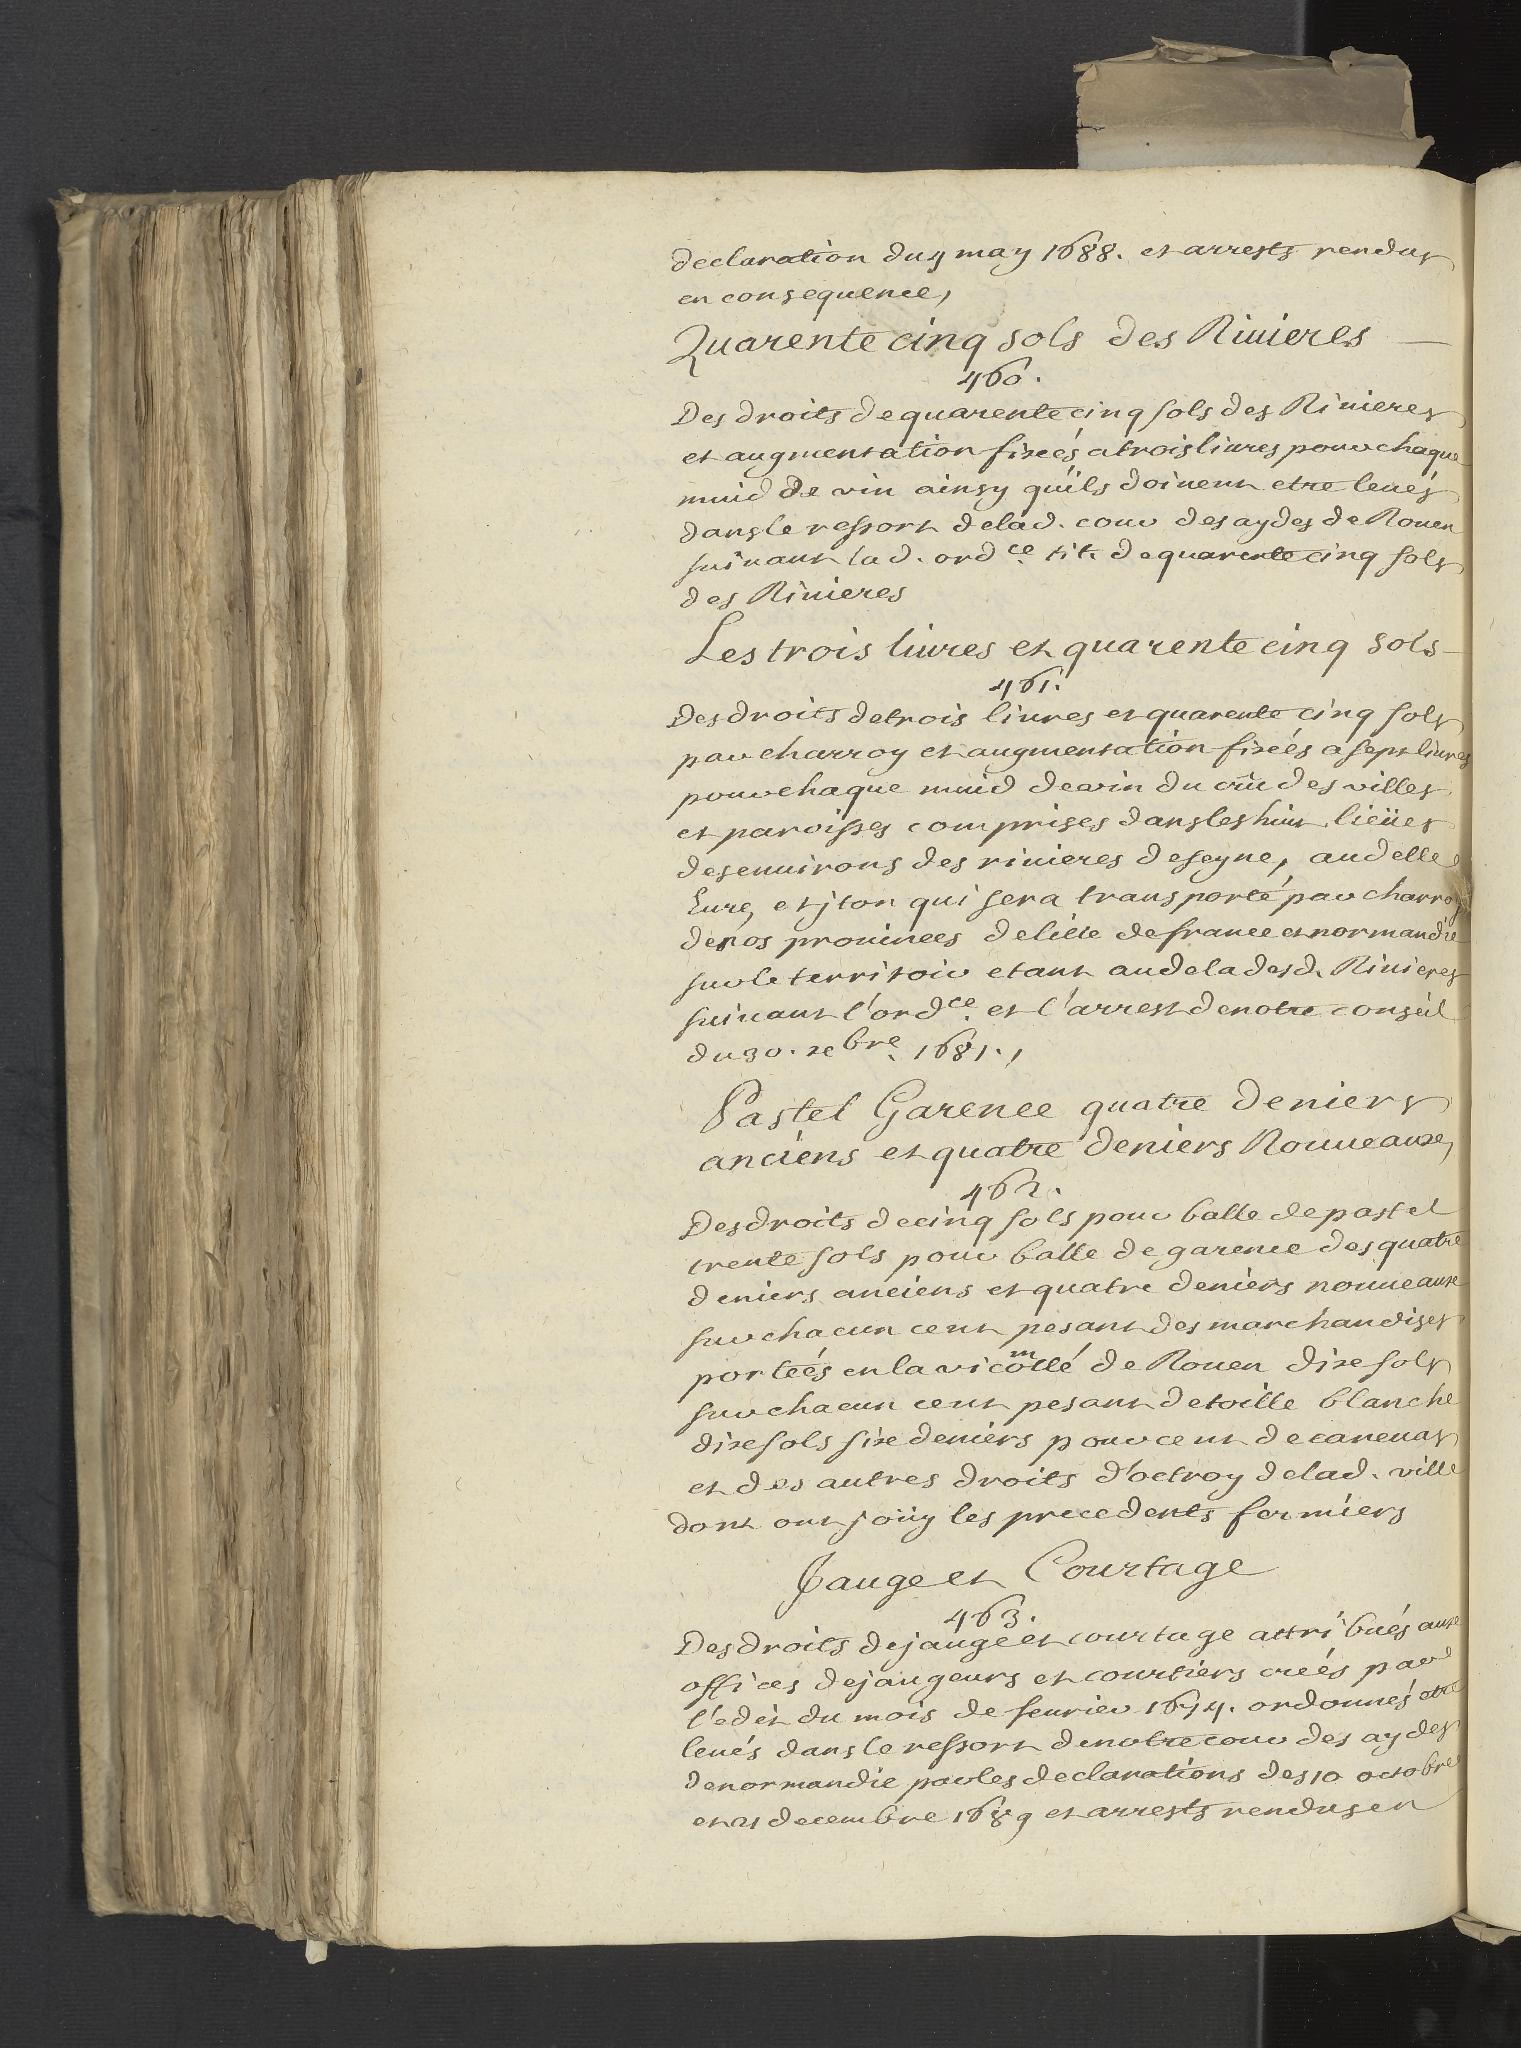 declaration du 4 may 1688. et arrests rendus
en consequence,
Quarente cinq sols des Riuieres
460.
Des droits de quarente cinq sols des Riuieres
et augmentation fixeés a trois liures pour chaque
muid de vin ainsy qu'ils doiuent etre leués
dans le ressort de lad. cour des aydes de Rouen
suiuant lad. ordce. tit. de quarente cinq sols
des Riuieres
Les trois liures et quarente cinq sols
461.
Des droits de trois liures et quarente cinq sols
par charroy et augmentation fixeés a sept liures
pour chaque muid de vin du crû des villes
et paroisses comprises dans les huit lieües
des enuirons des riuieres de seyne, andelle
Eure, et jton qui sera transporté par charroy
de nos prouinces de lille de france et normandie
sur le territoir etant au dela desd. Riuieres
suiuant l'ordce. et l'arrest de notre conseil
du 30. xebre. 1681.,
Pastel Garence quatre deniers
anciens et quatre deniers Nouueaux,
462.
Des droits de cinq sols pour balle de pastel
trente sols pour balle de garence des quatre
deniers anciens et quatre deniers nouueaux
sur chacun cent pesant des marchandises
porteés en la vicomté de Rouen dix sols
sur chacun cent pesant de toille blanche
dix sols six deniers pour cent de caneuas
et des autres droits d'octroy de lad. ville
dont ont joüy les precedents fermiers
Jauge et Courtage
463.
Des droits de jauge et courtage attribués aux
offices de jaugeurs et courtiers creés par
l'edit du mois de feurier 1674. ordonnés etre
leués dans le ressort de notre cour des aydes
de normandie par les declarations des 10 octobre
et 21 decembre 1689 et arrests rendus en